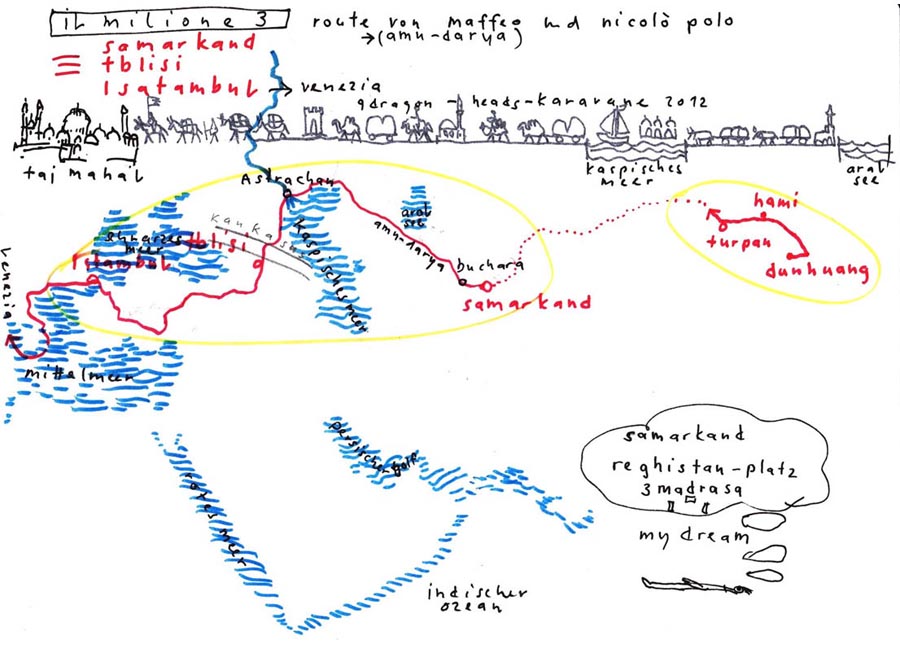 il milione 3
route von maffeo und nicolò polo
→(amu-darya)
samarkand
tblisi
Isatambul → venezia
9dragon-heads-karavane 2012
taj mahal
kaspisches
meer
aral
see
Astrachan
kaukasus
aral
see
hami
turpan
dunhuang
schwarzes
meer
tblisi
Istambul
venezia
kaspisches meer
amu-darya
buchara
samarkand
mittelmeer
persischer golf
rotes meer
indischer
ozean
samarkand
reghistan-platz
3madrasa
my dream